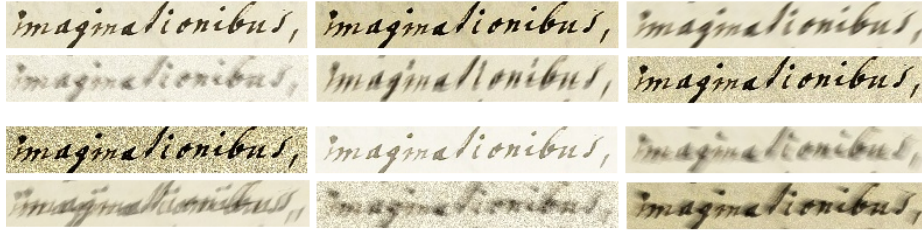 imaginationibus, imaginationibus, imaginationibus,
imaginationibus, imaginationibus, imaginationibus,
imaginationibus, imaginationibus, imaginationibus,
imaginationibus, imaginationibus, imaginationibus,